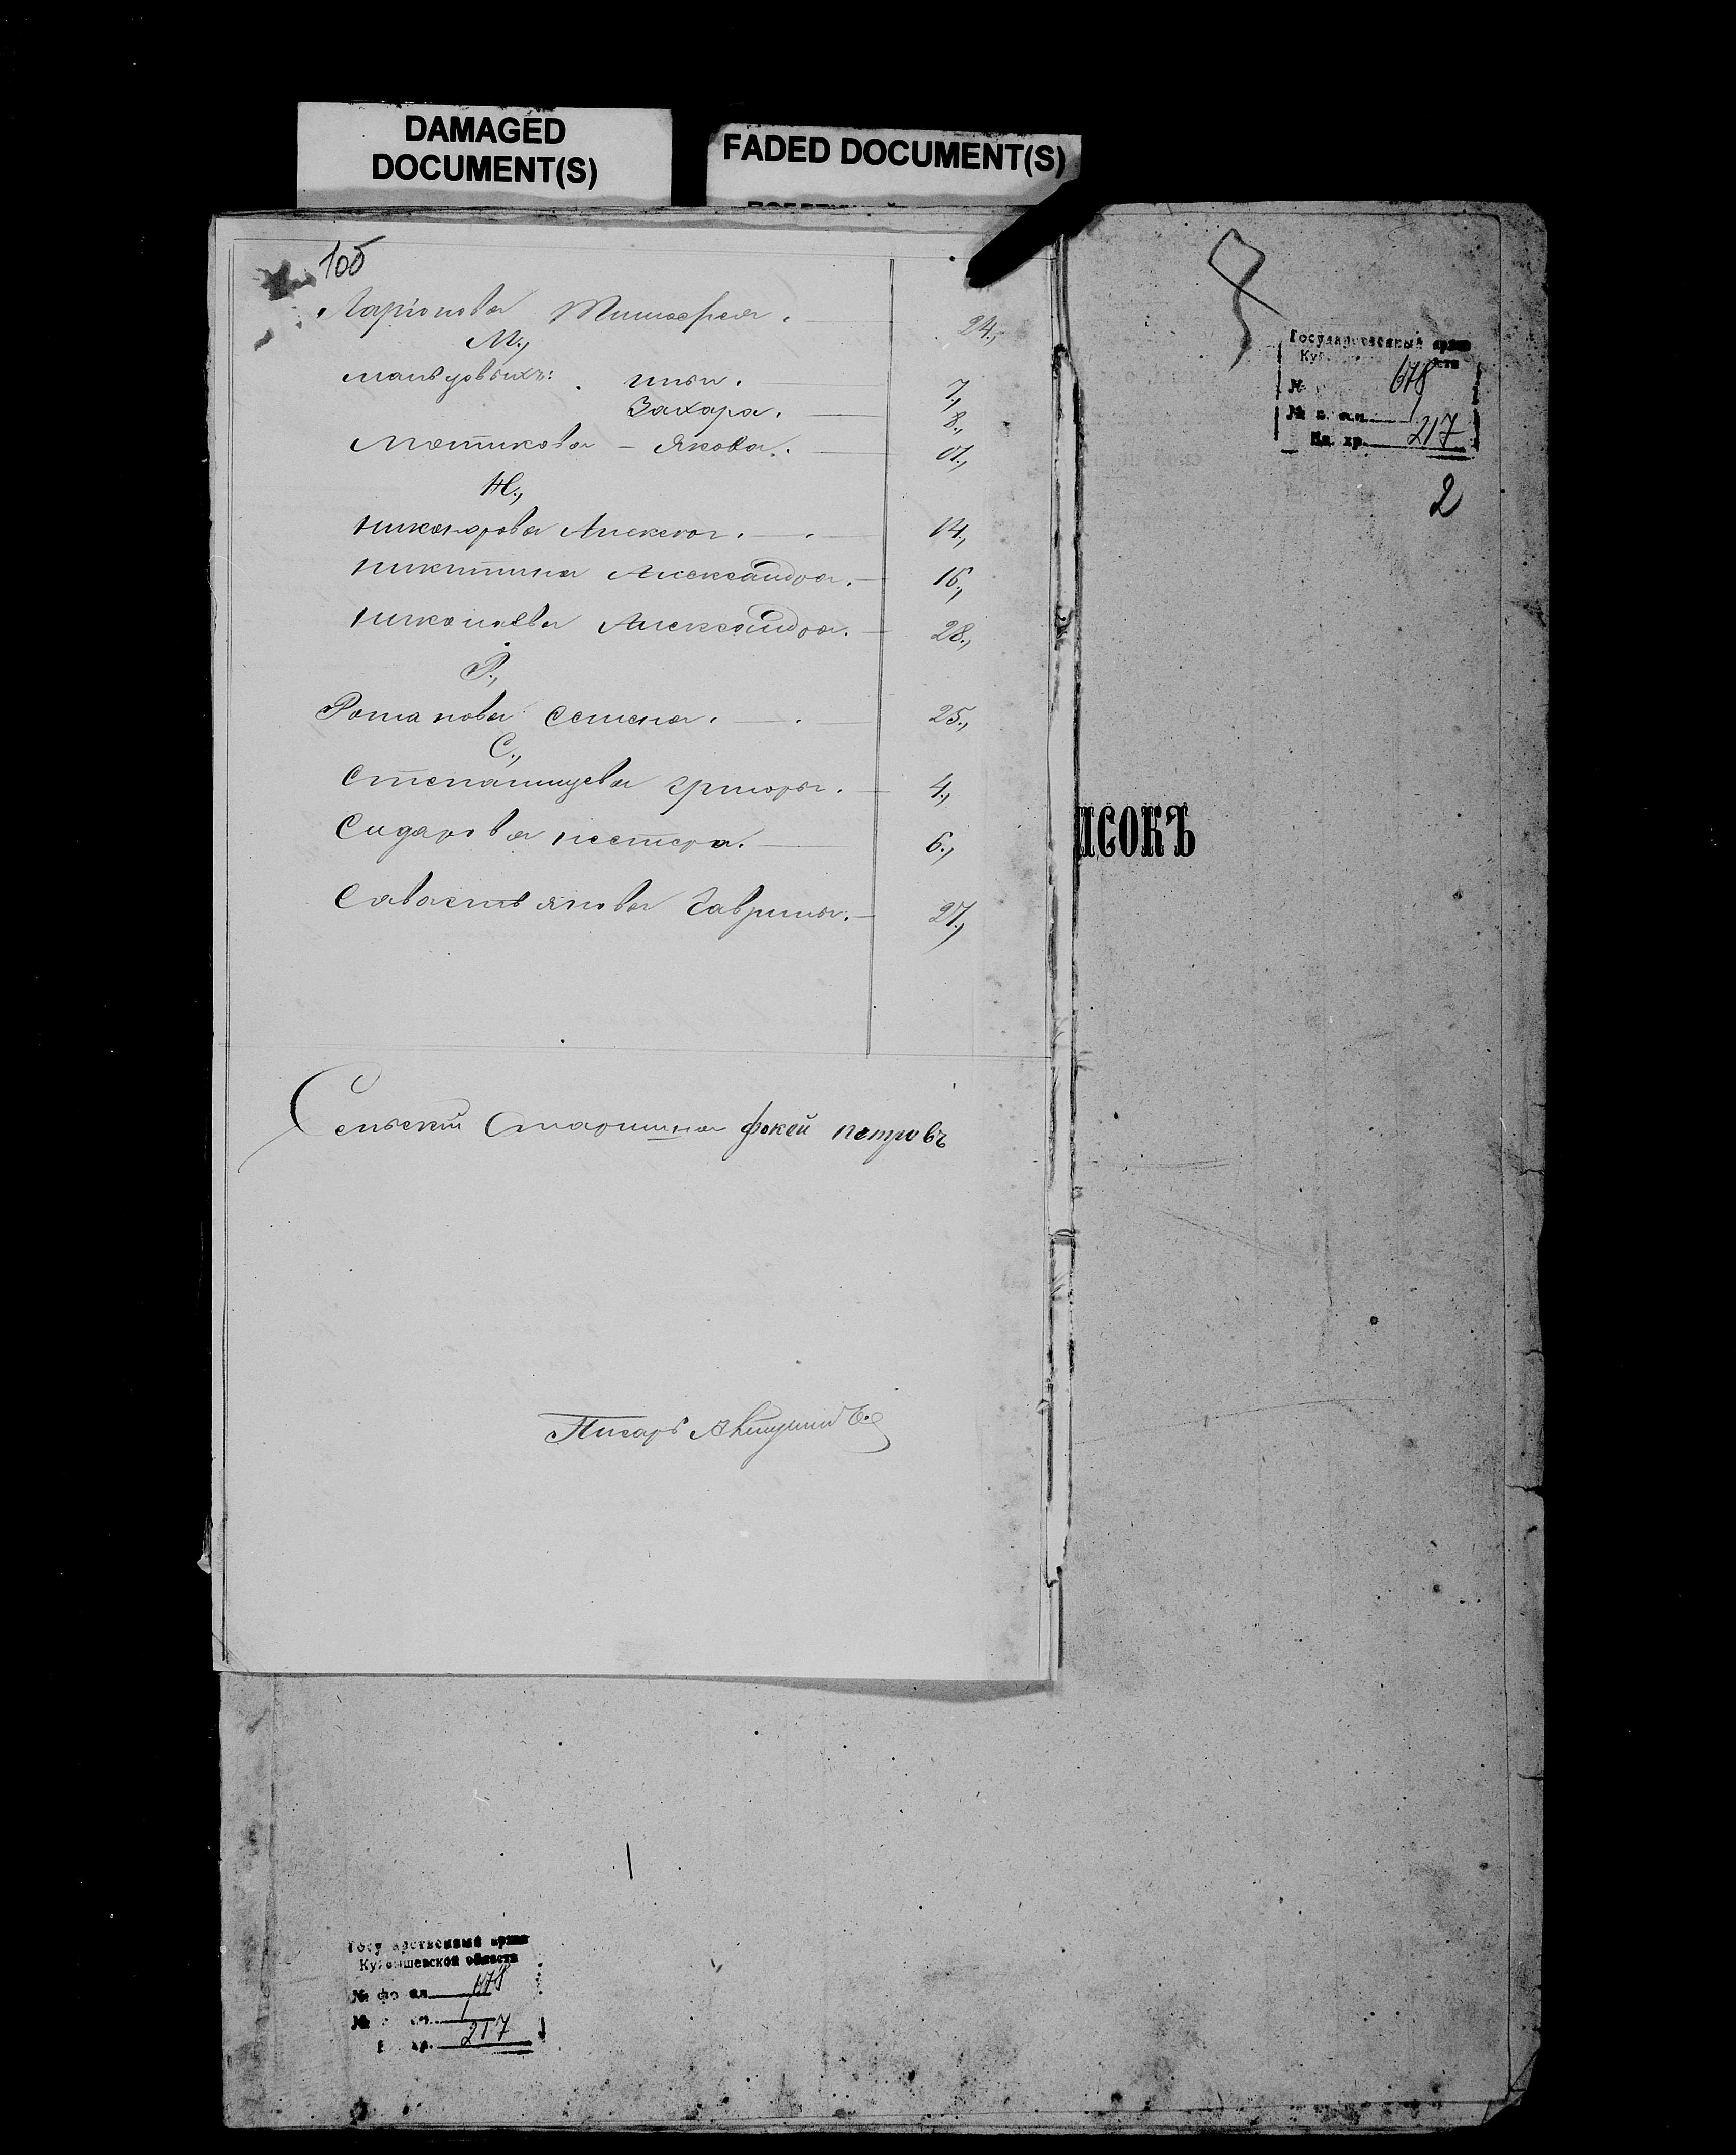 DAMAGED
DOCUMENT(S)
FADED DOCUMENT(S)
105
Ларіонова Тимофея. 24.,
М.,
Захара. 8.,
Мотикова - Якова.
Н.,
никонорова Алексея. 14.,
никитина Александра. 16.,
николаева Александра. 28.,
Р.,
Романова Семена. 25.,
С.,
Степанцева григорья. 4.,
Сидарова нестера. 6.,
Савастьянова Гаврилы. 27.,
Сельскій Старшина фокей петровъ
Писарь
ИСОКЪ
Государственный архив
№ 678
№ 1
Ед. хр. 217
2
1
Государственный архив
Куйбышевской области
№ фонда 678
№ 1
хр. 217